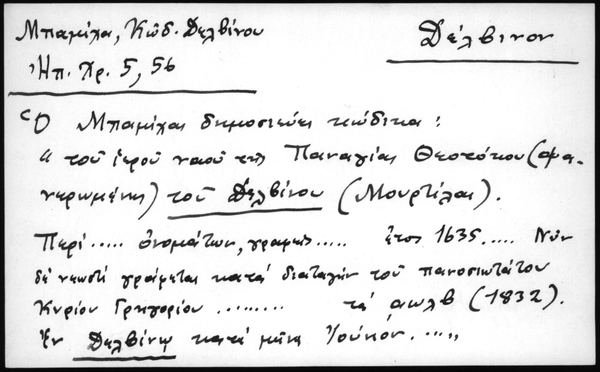 Μπαμίχα, Κώδ. Δελβίνου
Δέλβινον
Ἠπ. Χρ. 5, 56
Ὁ Μπαμίχας δημοσιεύει κώδικα :
« τοῦ ἱεροῦ ναοῦ τῆς Παναγίας Θεοτόκου (φα-
νερωμένης) τοῦ Δελβίνου (Μουρτίλας).
Περί ..... ὀνομάτων, γραφείς ..... ἔτος 1635..... Νῦν
δέ νεωστί γράφεται κατά διαταγήν τοῦ πανοσιωτάτου
Κυρίου Γρηγορίου ........ τά αωλβ (1832).
Ἐν Δελβίνῳ κατά μῆνα ....»